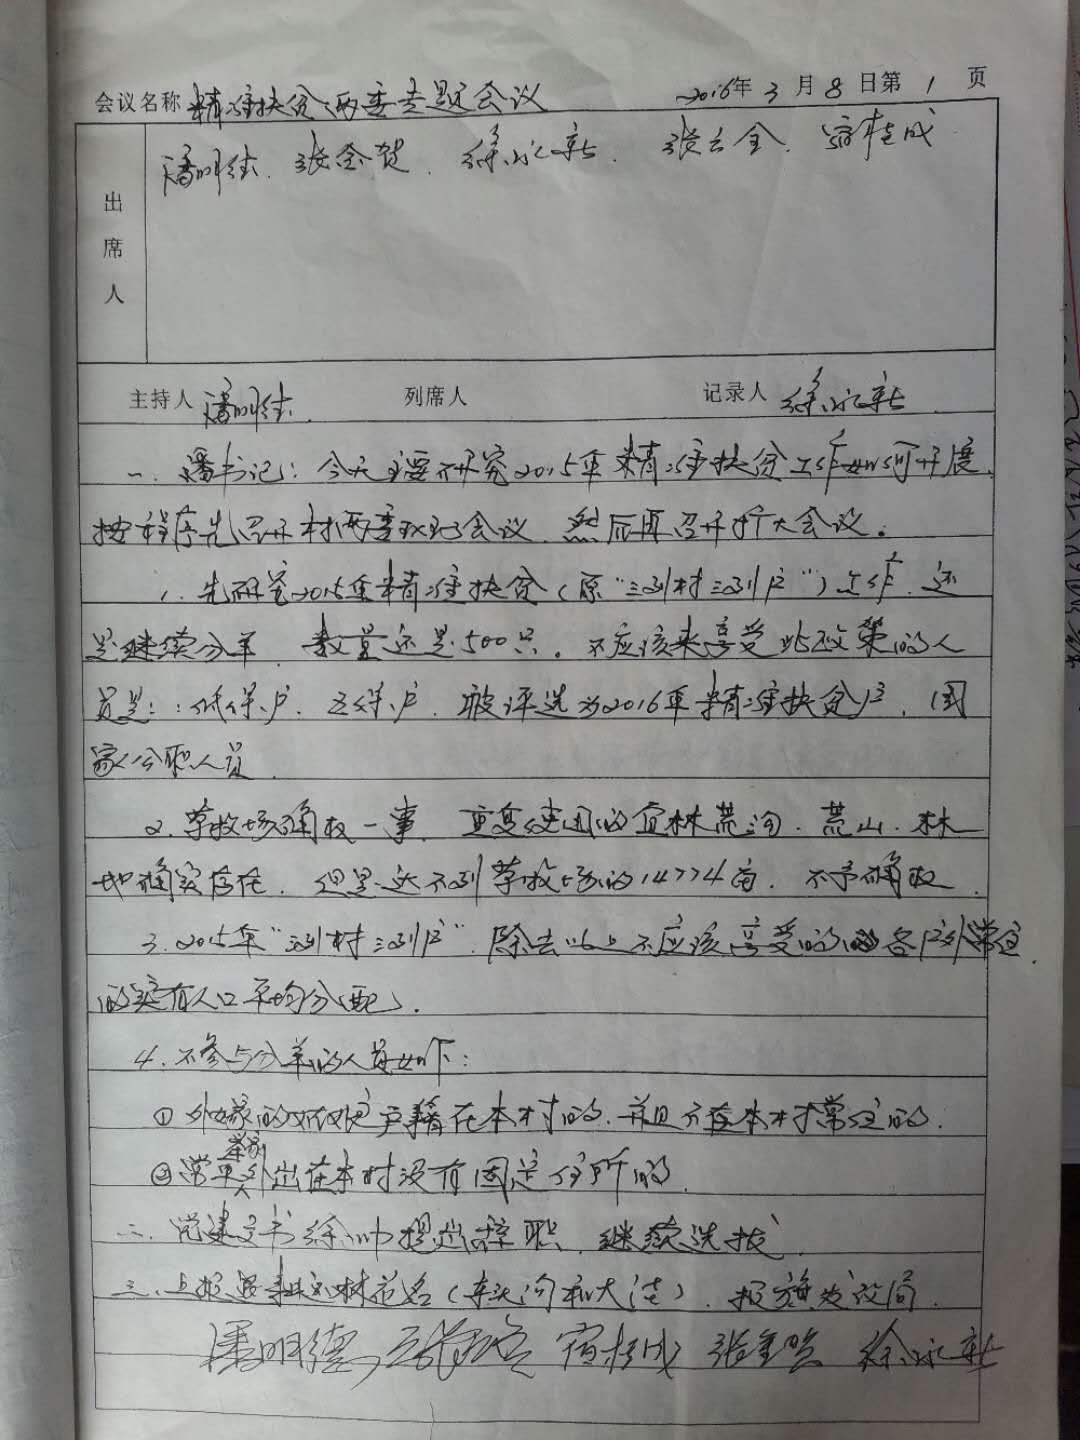 会议名称 精准扶贫两委专题会议 2016年3月8日第1页
出席人
潘明德 张金贺 徐永新 张云金 宿桂成
主持人 潘明德 列席人 记录人 徐永新
一、潘书记:今天主要研究2015年精准扶贫工作如何开展
按程序先召开村两委班子会议,然后再召开扩大会议。
1、先研究2015年精准扶贫(原"三到村三到户")工作,还
是继续分羊,数量还是500只。不应该来享受此政策的人
员是:低保户、五保户、被评选为2016年精准扶贫户、国
家公职人员
2、草牧场确权一事,重复使用的宜林荒沟、荒山、林
地确实存在,但是达不到草牧场的14774亩,不予确权
3、2015年"三到村三到户",除去以上不应该享受的各户外常住
的实有人口平均分配。
4、不参与分羊的人员如下:
①外嫁的 户籍在本村的,并且不在本村常住的。
②常年举家外出在本村没有固定住所的
二、党建文书徐帅提出辞职,继续选拔
三、上报退耕 (车头沟和大洼),报旗发改局。
潘明德 宿桂成 徐永新